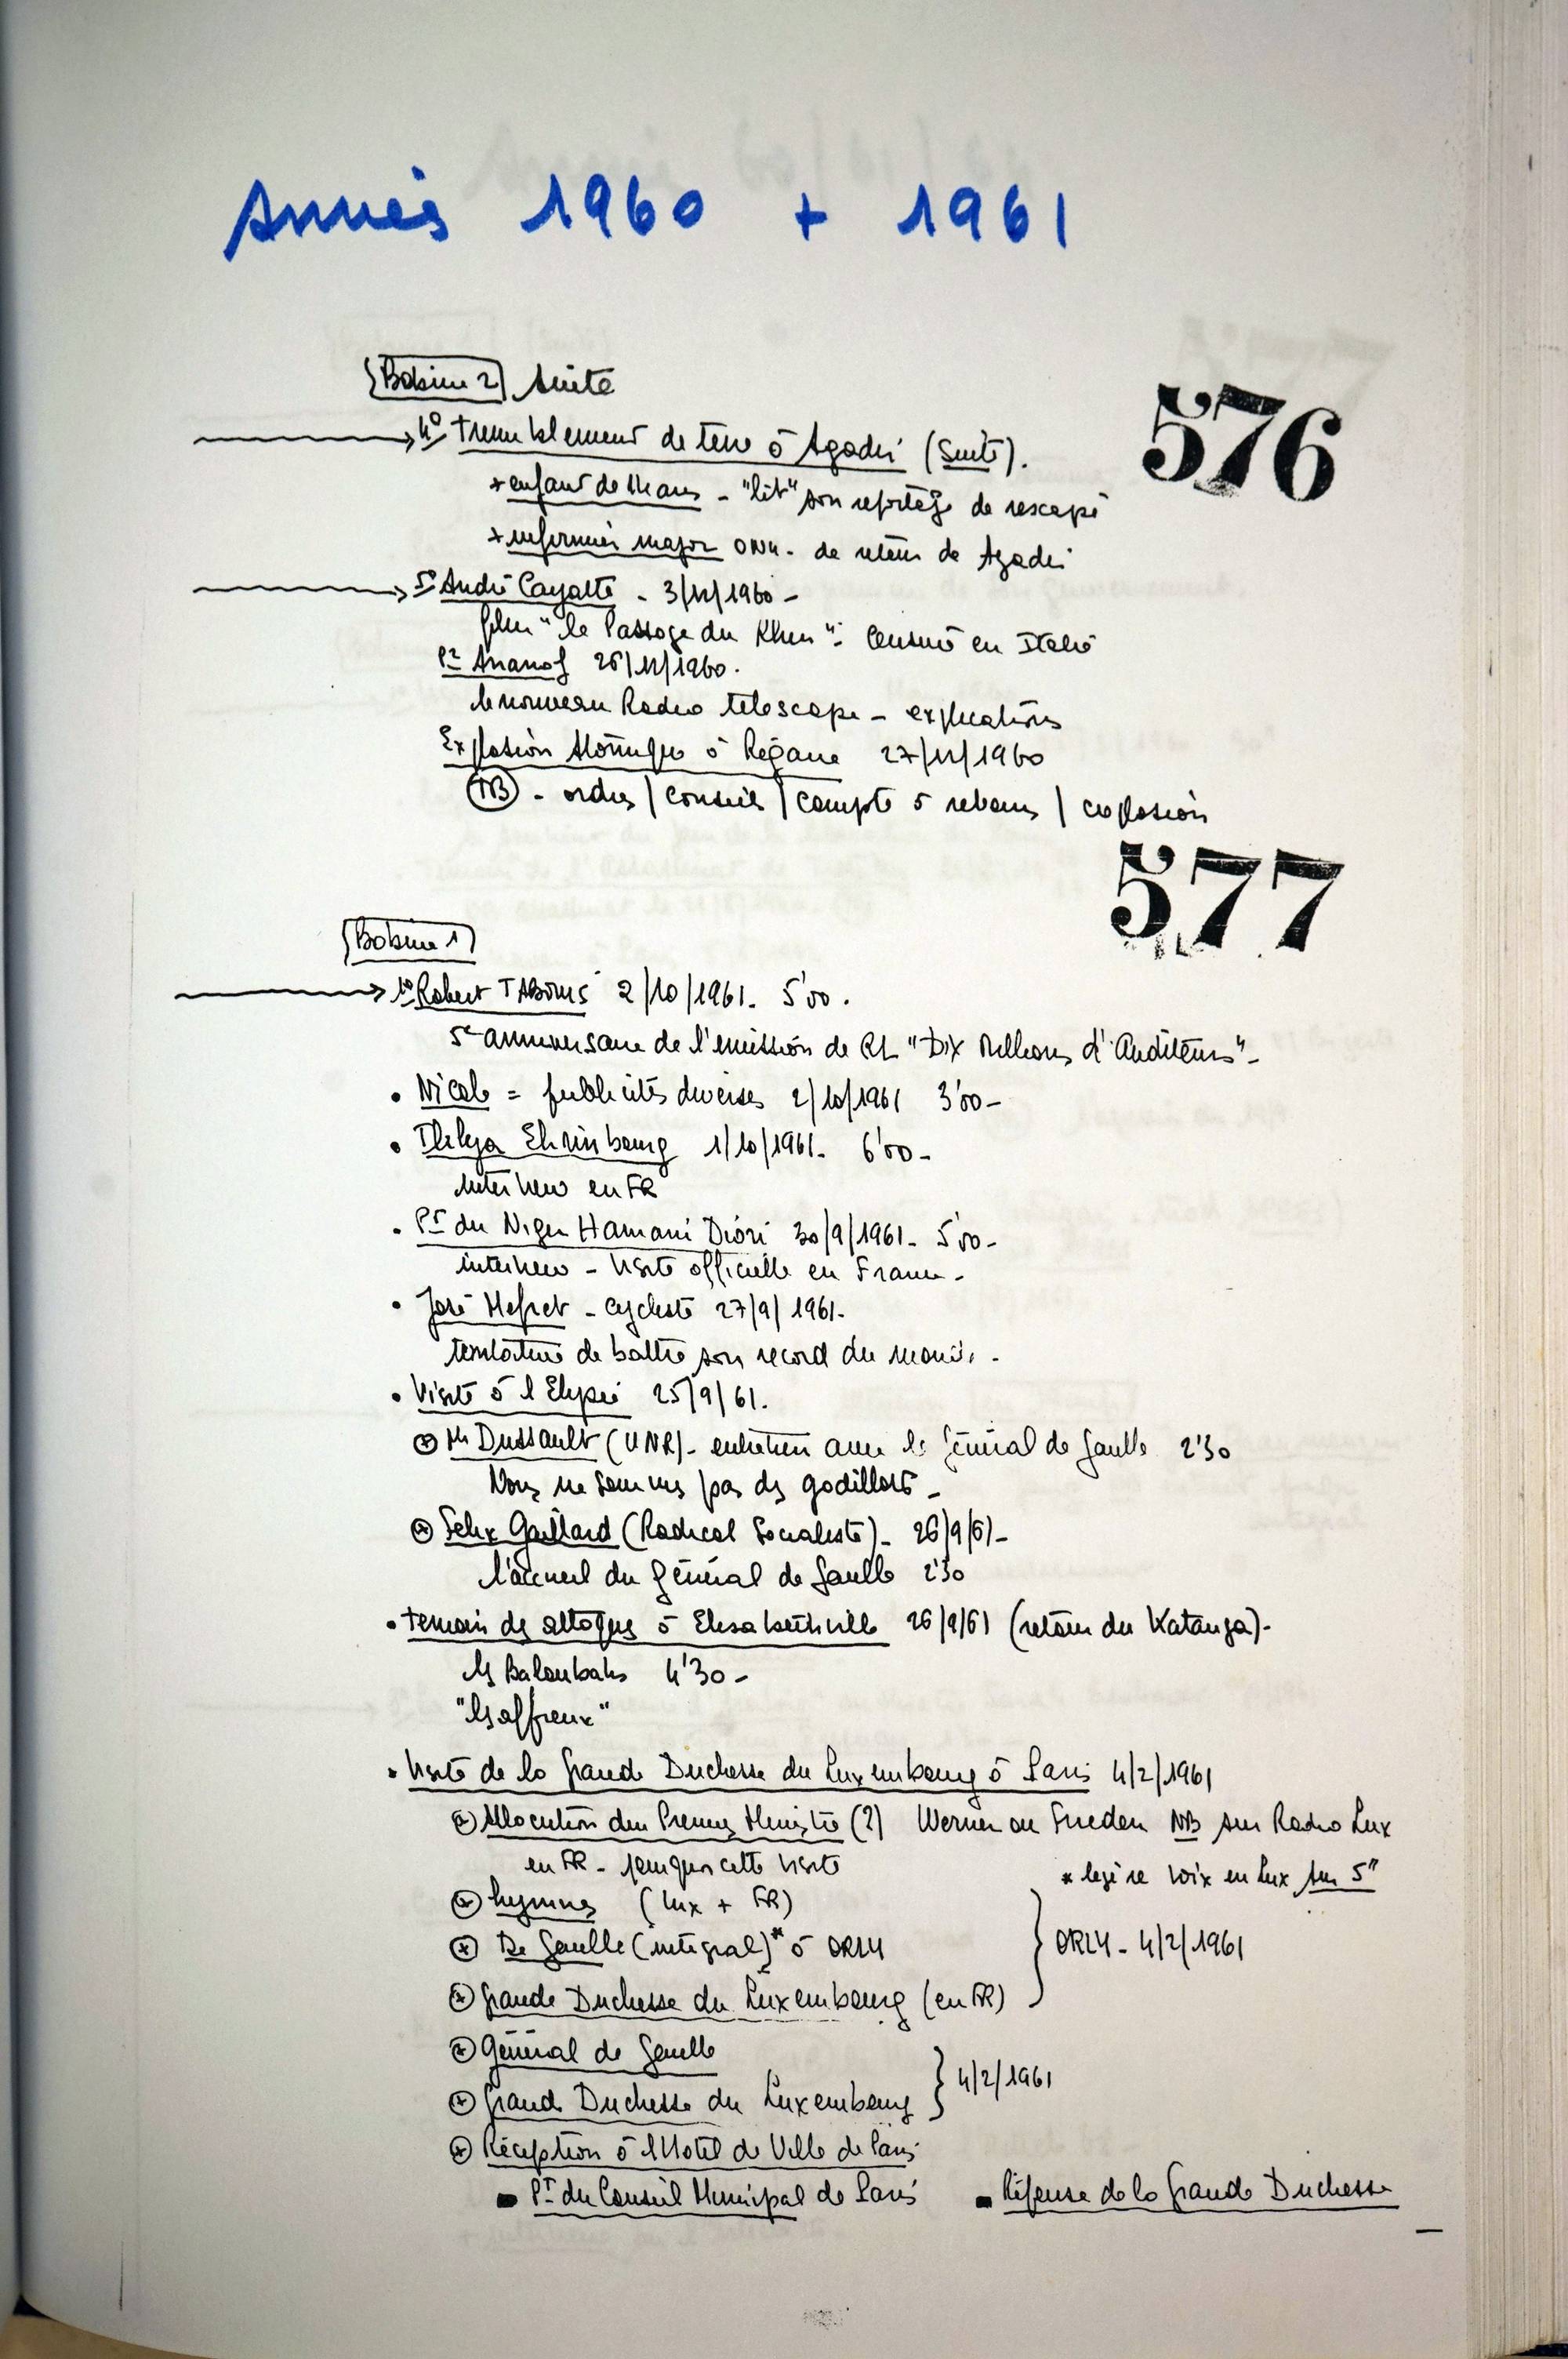 Années 1960 + 1961
Bobine 2 suite
576
4° Tremblement de terre à Agadir (suite).
+ enfant de - "lit" son reportage de rescapé
+ infirmier major ONU - de retour de Agadir
5° André Cayatte - 3/11/1960 -
film "le Passage du Rhin": Censuré en Italie
Pr Ananof 25/11/1960.
le nouveau Radio telescope - explications
Explosion Atomique à Régane 27/12/1960
TB - ordres / conseils / compte à rebours / explosion
577
Bobine 1
1° Robert TABOUIS 2/10/1961. 5'00.
5e anniversaire de l'émission de RL "Dix Millions d'Auditeurs" -
• Nicole = publicités diverses 2/10/1961 3'00 -
• Ilya Ehrinbourg 1/10/1961. 6'00 -
interview en FR
• Pt du Niger Hamani Diori 30/9/1961 - 5'00 -
interview - Visite officielle en France -
• José Meifret - cycliste 27/9/1961 -
tentative de battre son record du monde -
• Visite à l'Elysée 25/9/61.
Mr Dussault (UNR) - entretien avec le Général de Gaulle 2'30
Nous ne sommes pas des godillots -
Felix Gaillard (Radical Socialiste) - 26/9/61 -
l'accueil du Général de Gaulle 2'30
• Temoin des attaques à Elisabethville 26/9/61 (retour du Katanga) -
les Baloubahs 4'30 -
"les affreux"
• Visite de la Grande Duchesse du Luxembourg à Paris 4/2/1961
Allocution du Premier Ministre (?) Werner ou Frieden NB sur Radio Lux
en FR - pourquoi cette visite
* legère voix en Lux sur 5"
hymnes (Lux + FR)
De Gaulle (intégral)* à ORLY
ORLY - 4/2/1961
Grande Duchesse du Luxembourg (en FR)
Général de Gaulle
4/2/1961
Grande Duchesse du Luxembourg
Réception à l'Hotel de Ville de Paris
Pt du Conseil Municipal de Paris - Réponse de la Grande Duchesse